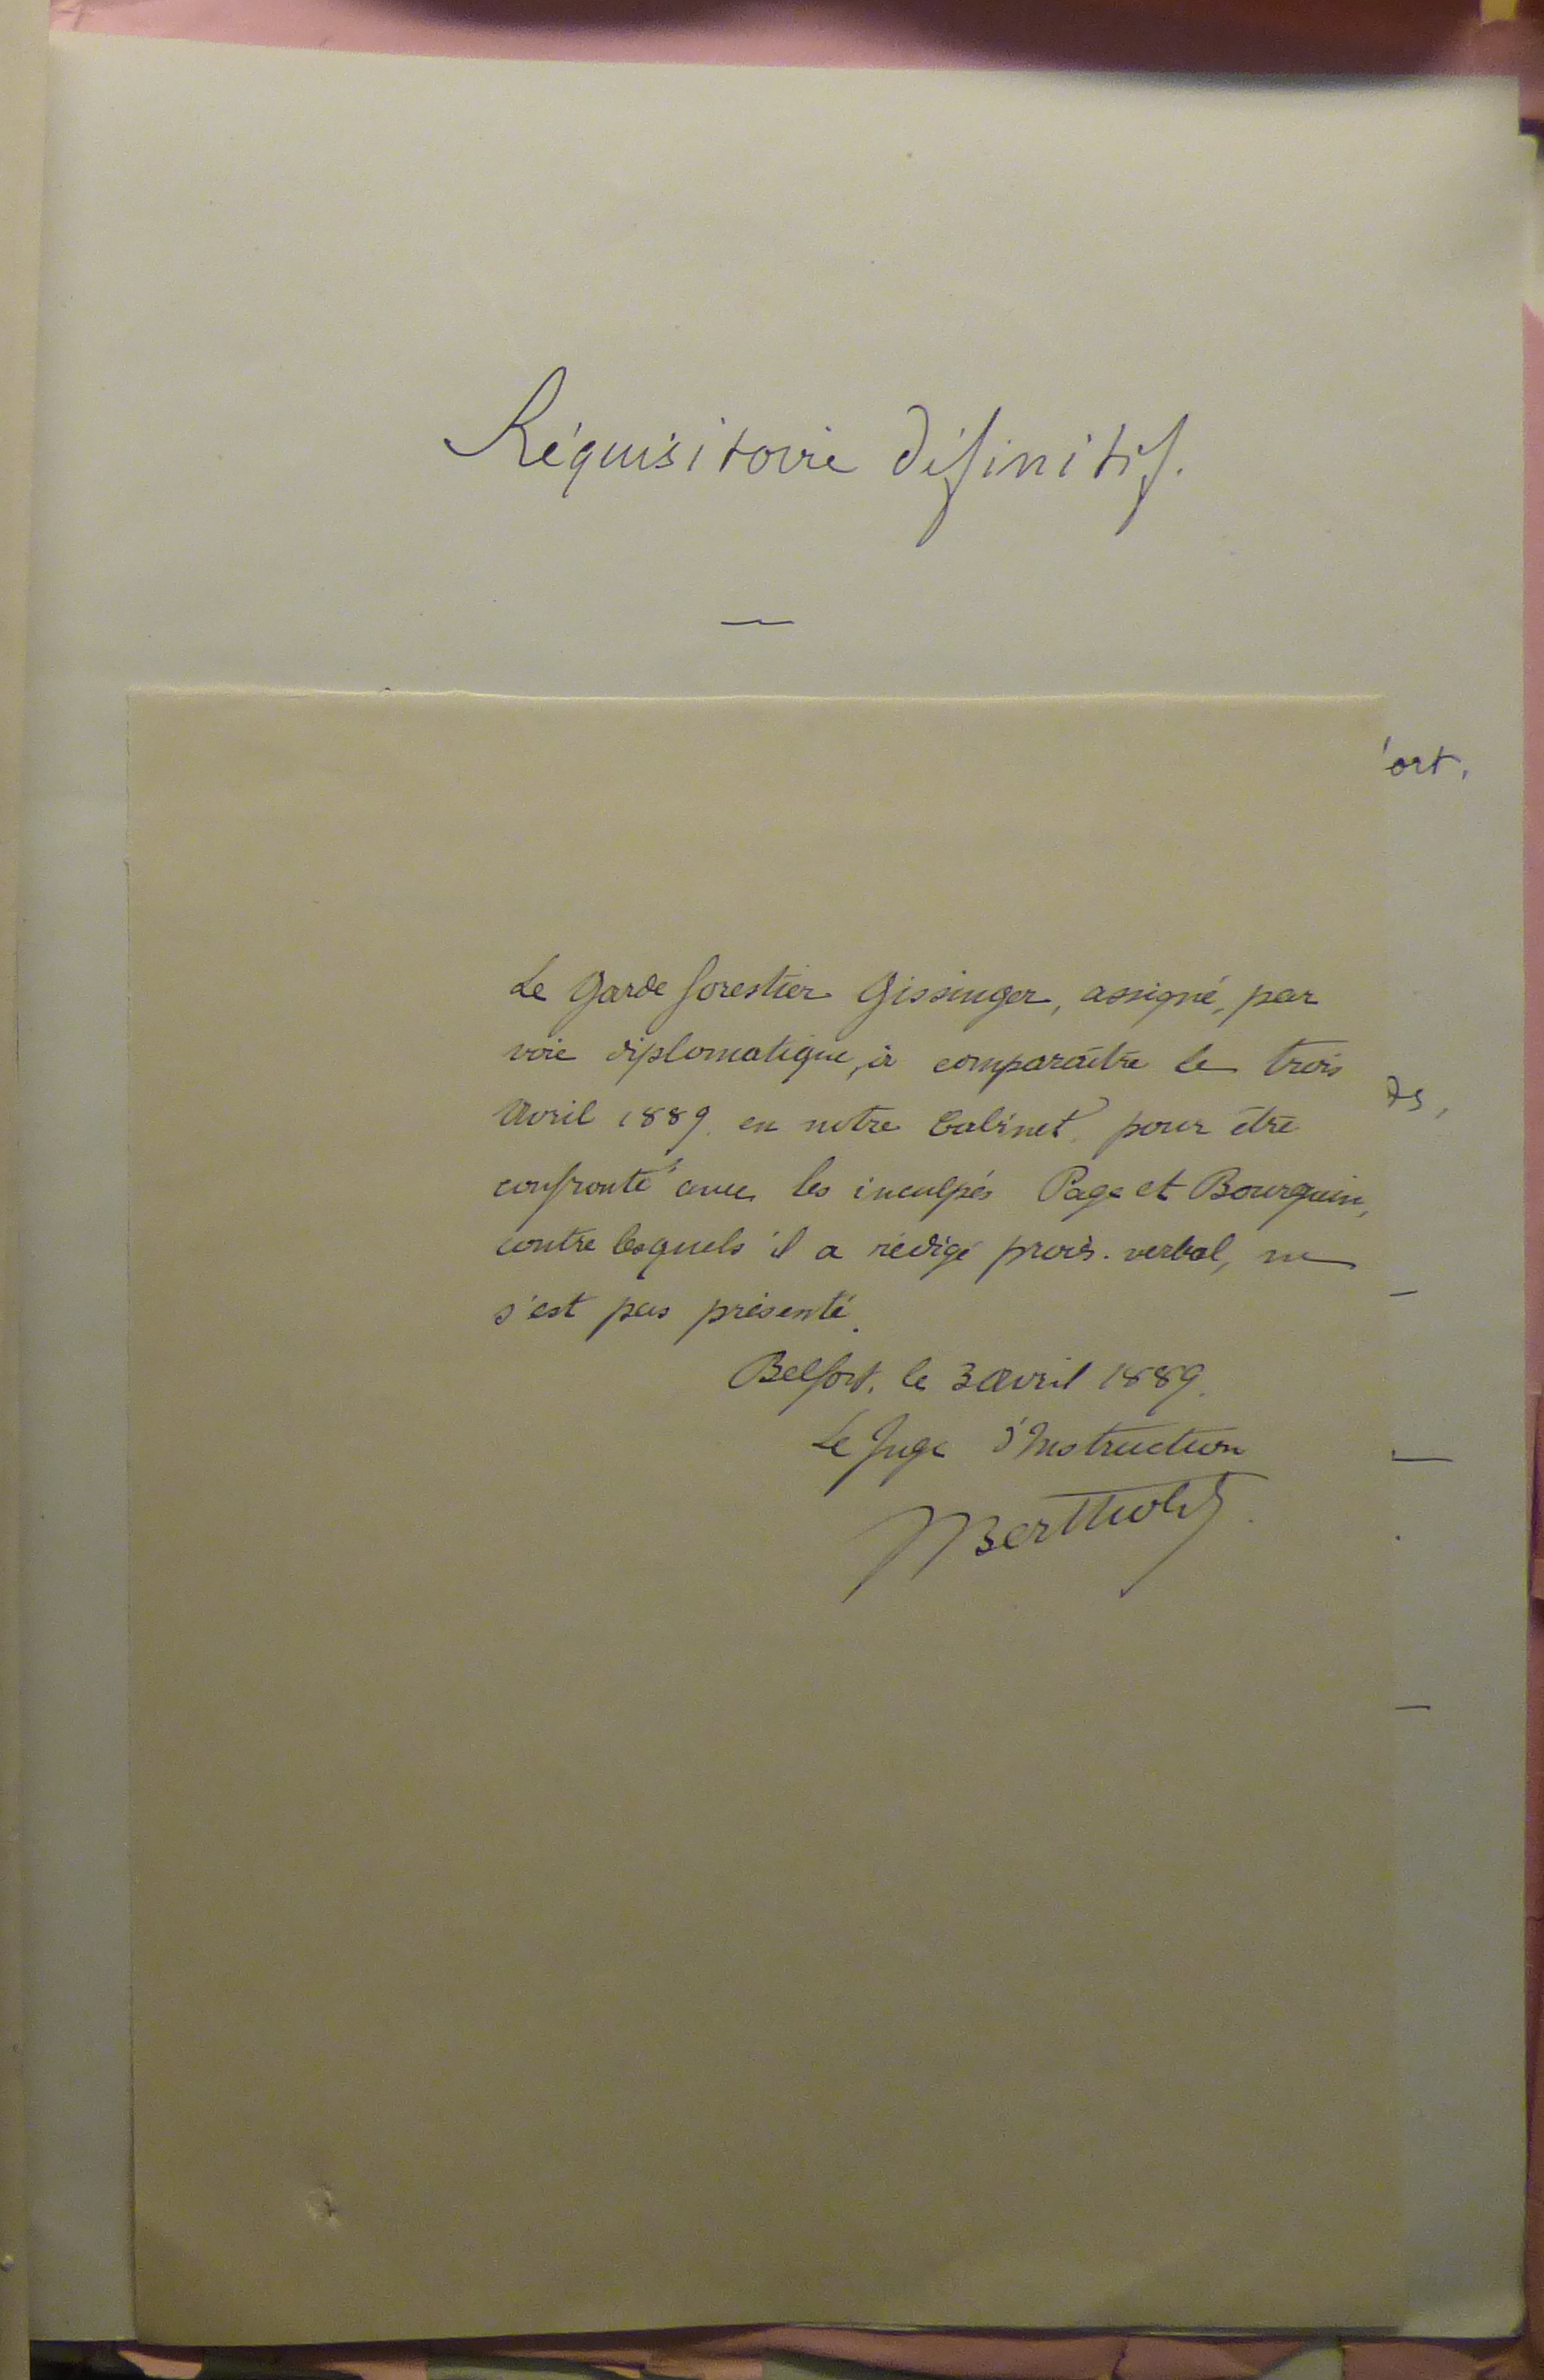 Réquisitoire définitif.
ort,
Le Garde forestier Gissinger, assigné, par
voie diplomatique, à comparaître le trois
Avril 1889 en notre Cabinet, pour être
confronté avec les inculpés Page et Bourquin,
contre lesquels il a rédigé procès-verbal, ne
s'est pas présenté.
Belfort, le 3 avril 1889.
Le Juge d'Instruction